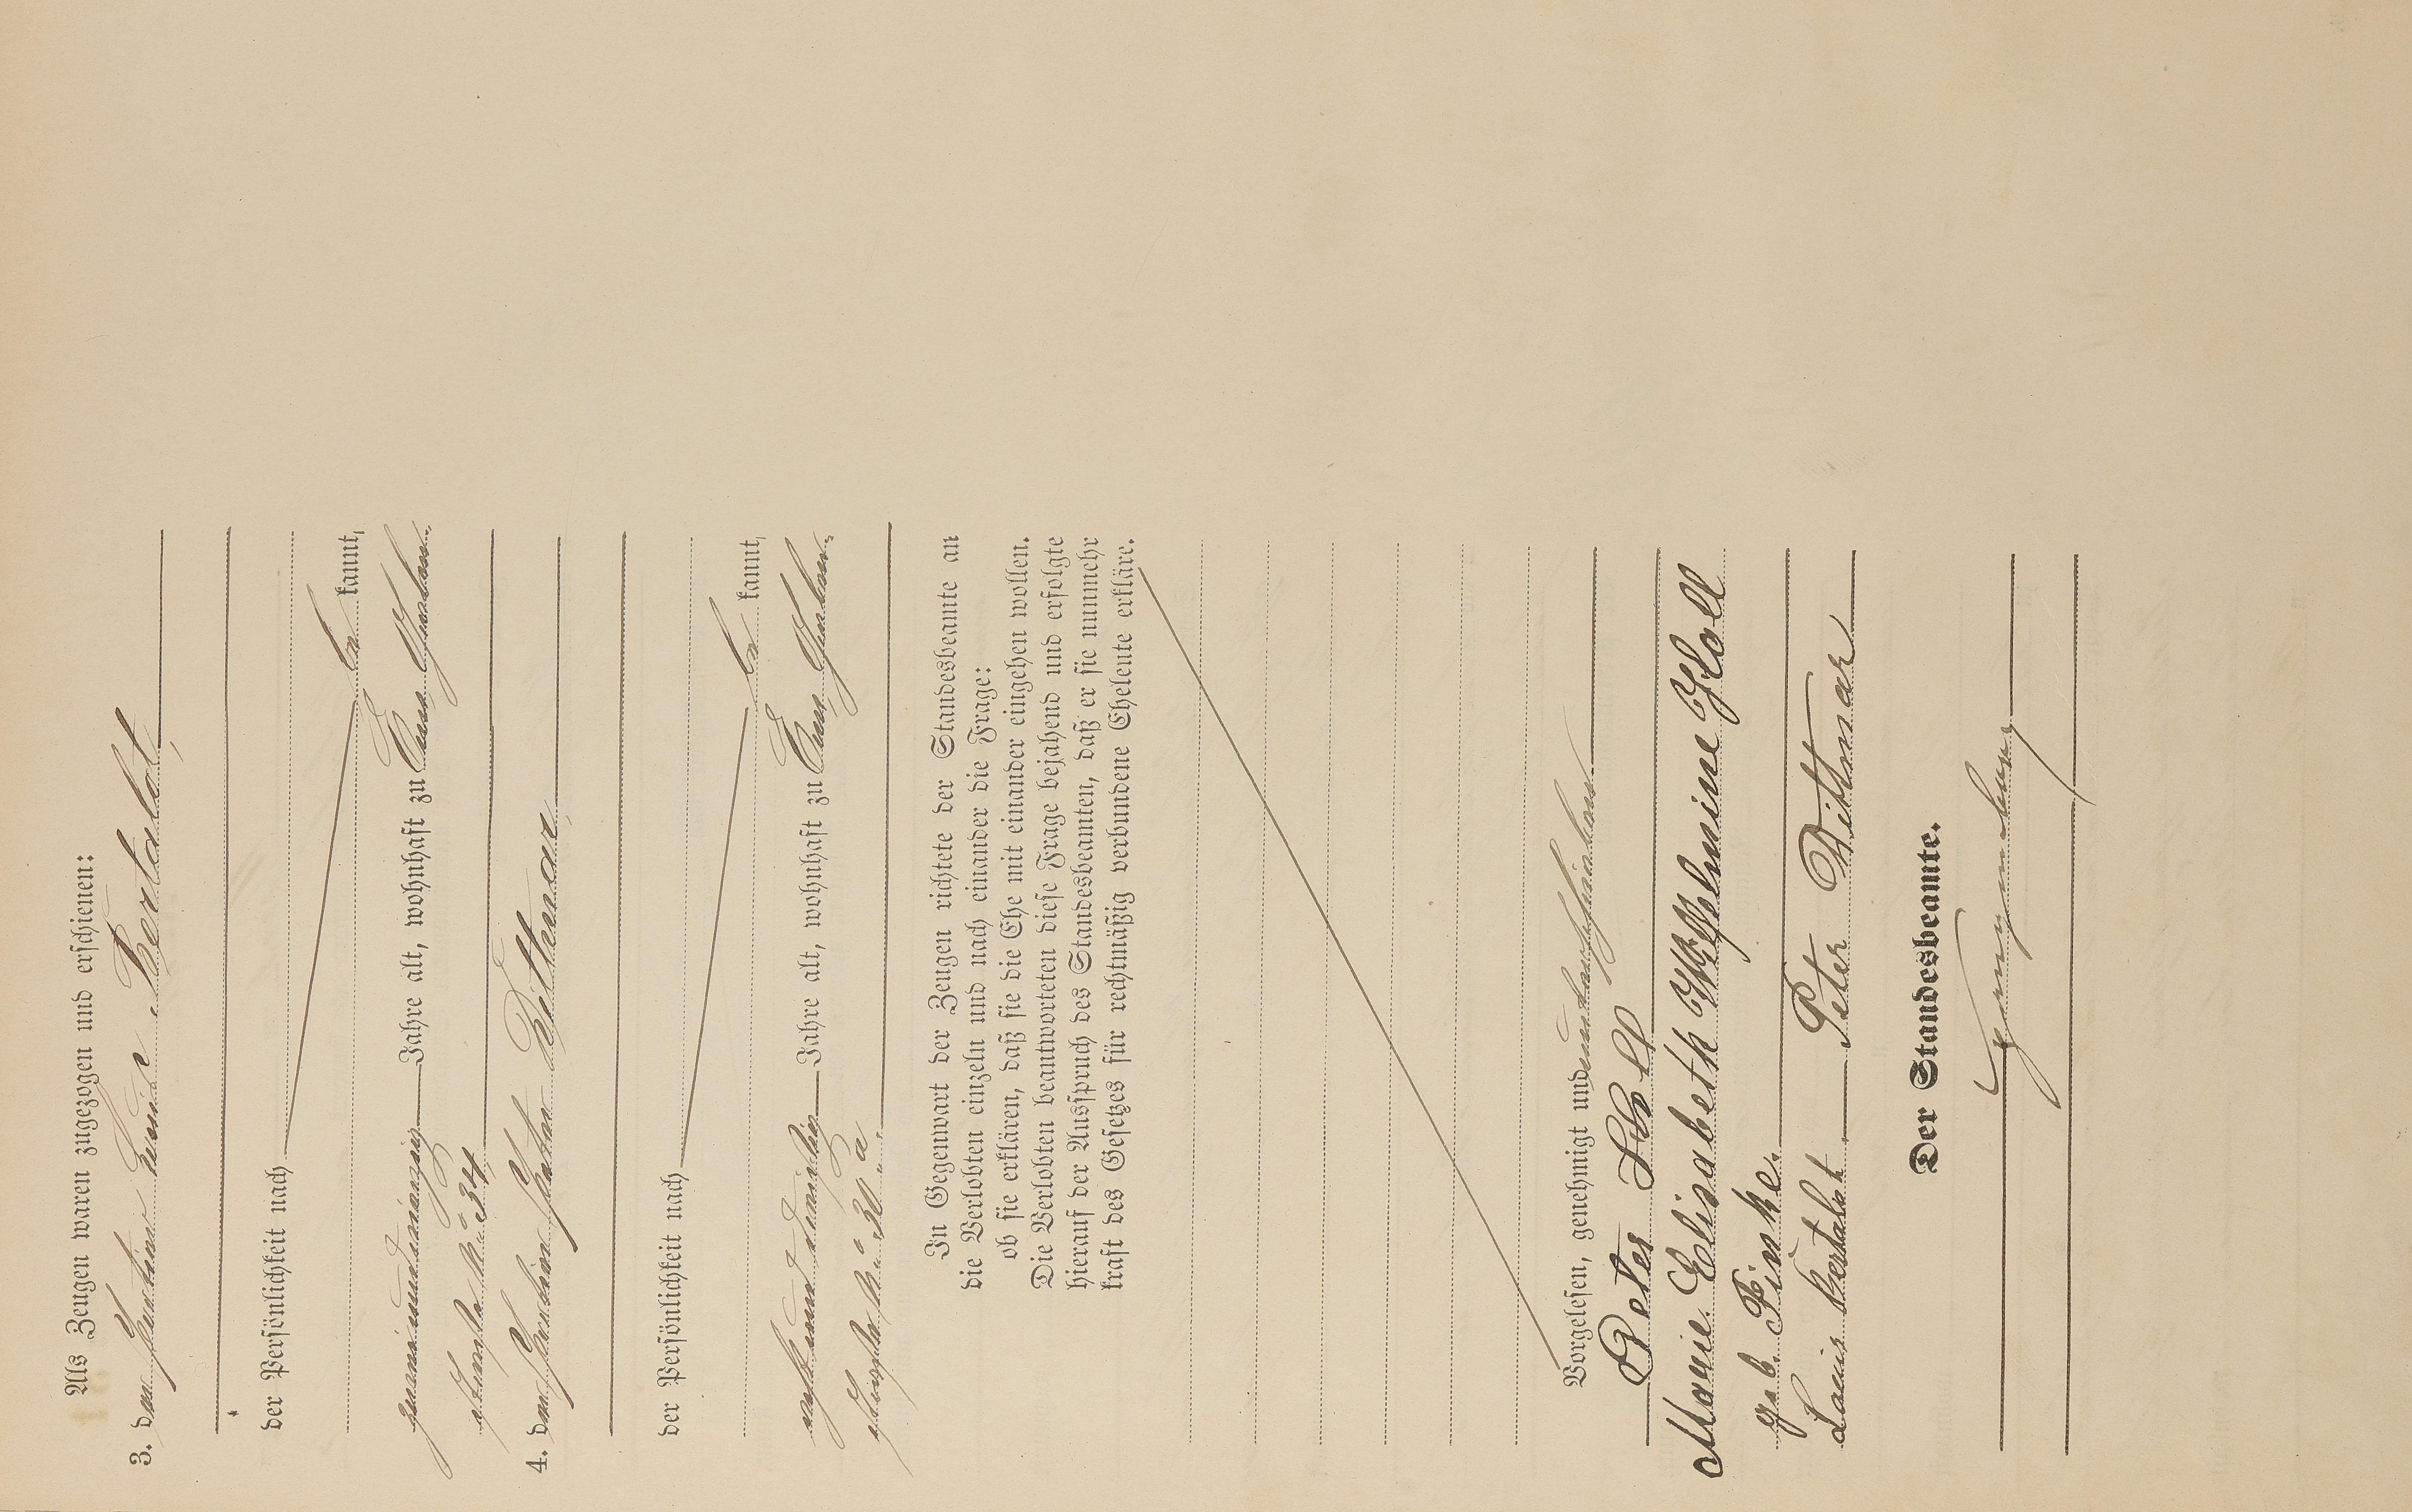 Als Zeugen waren zugezogen und erschienen:
3. der Louis Bertalot,
der Persönlichkeit nach
be kannt,
zweiundzwanzig Jahre alt, wohnhaft zu
straße No 34
4. der Peter Dittmar,
der Persönlichkeit nach
be kannt,
acht und dreißig Jahre alt, wohnhaft zu
No 30 a.
In Gegenwart der Zeugen richtete der Standesbeamte an
die Verlobten einzeln und nach einander die Frage:
ob sie erklären, daß sie die Ehe mit einander eingehen wollen.
Die Verlobten beantworteten diese Frage bejahend und erfolgte
hierauf der Ausspruch des Standesbeamten, daß er sie nunmehr
kraft des Gesetzes für rechtmäßig verbundene Eheleute erkläre.
Vorgelesen, genehmigt und unterschrieben
Peter Holl
Marie Elisabeth Wilhelmine Holl
geb. Finke.
Louis Bertalot. Peter Dittmar
Der Standesbeamte.